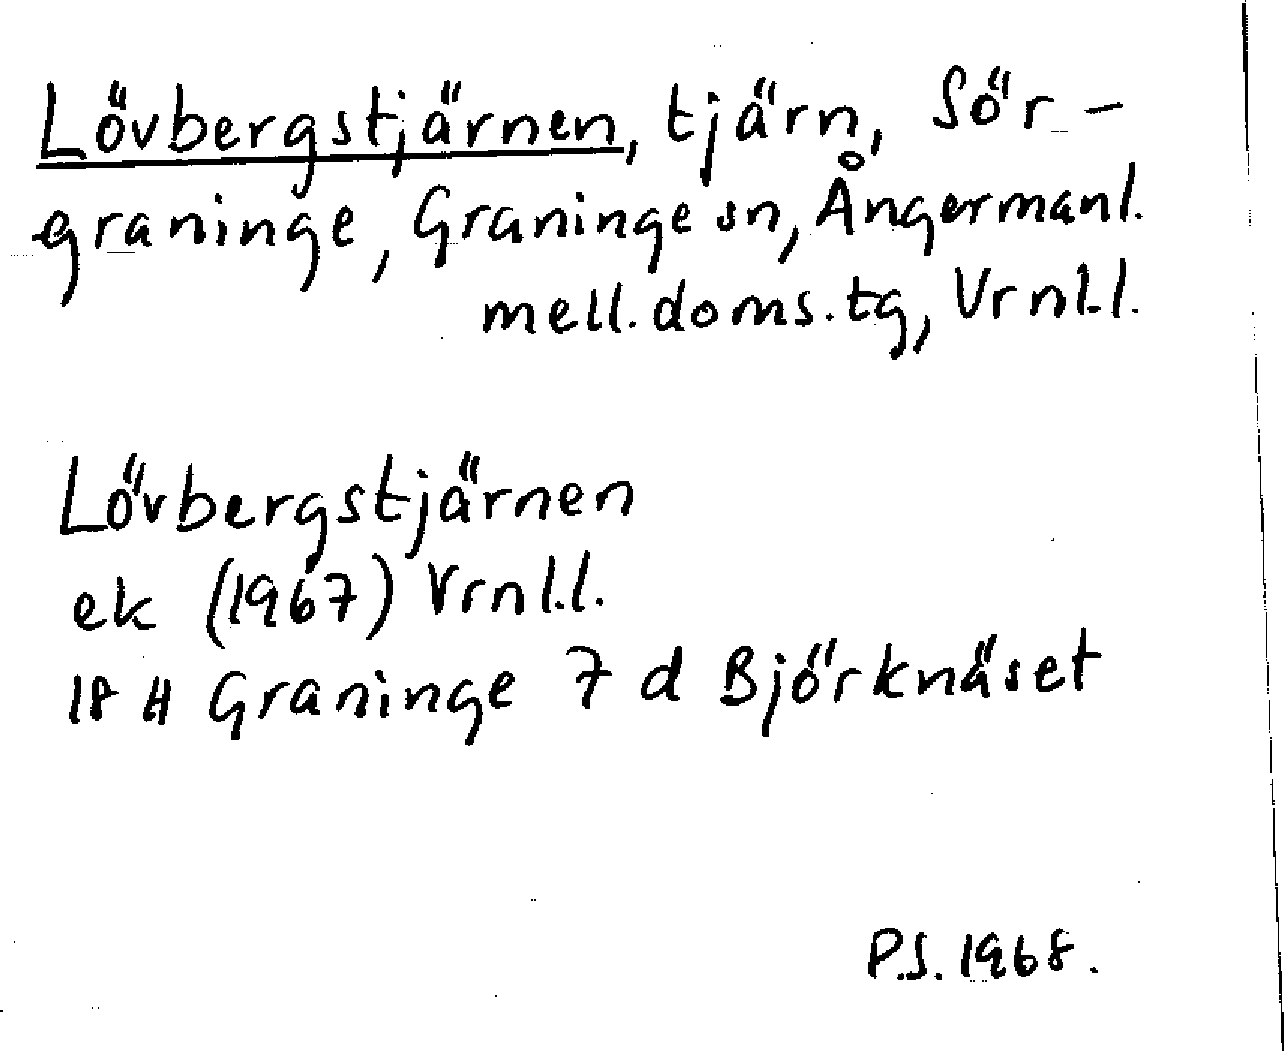 Lövbergstjärnen, tjärn, Sör-
graninge, Graninge sn, Ångermanl.
mell. doms. tg, Vrnl.l.
Lövbergstjärnen
ek (1967) Vrnl.l.
18 H Graninge 7 d Björknäset
P.S. 1968.